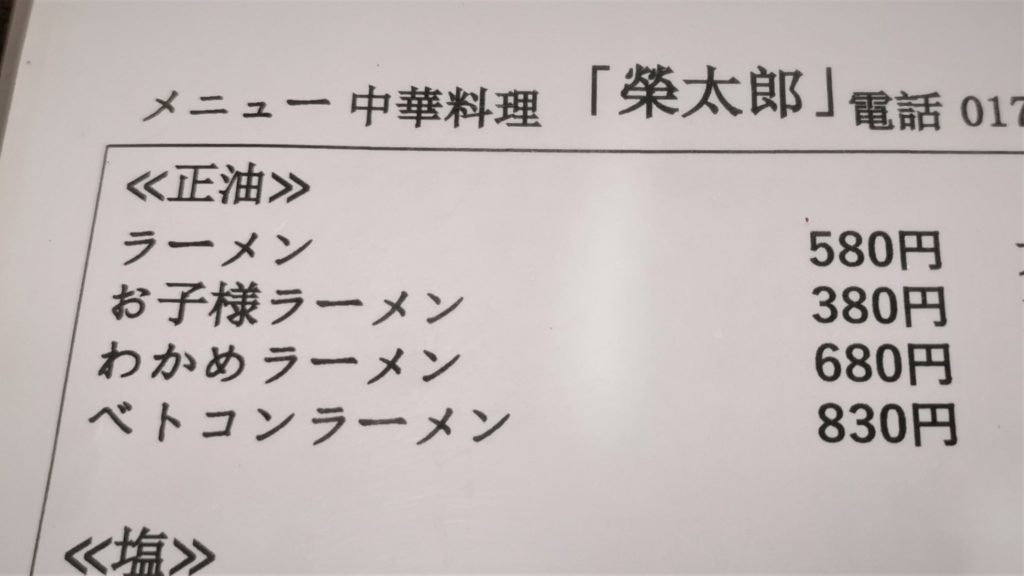 メニュー 中華料理 「榮太郎」 電話 017
≪正油≫
ラーメン 580円
お子様ラーメン 380円
わかめラーメン 680円
ベトコンラーメン 830円
≪塩≫